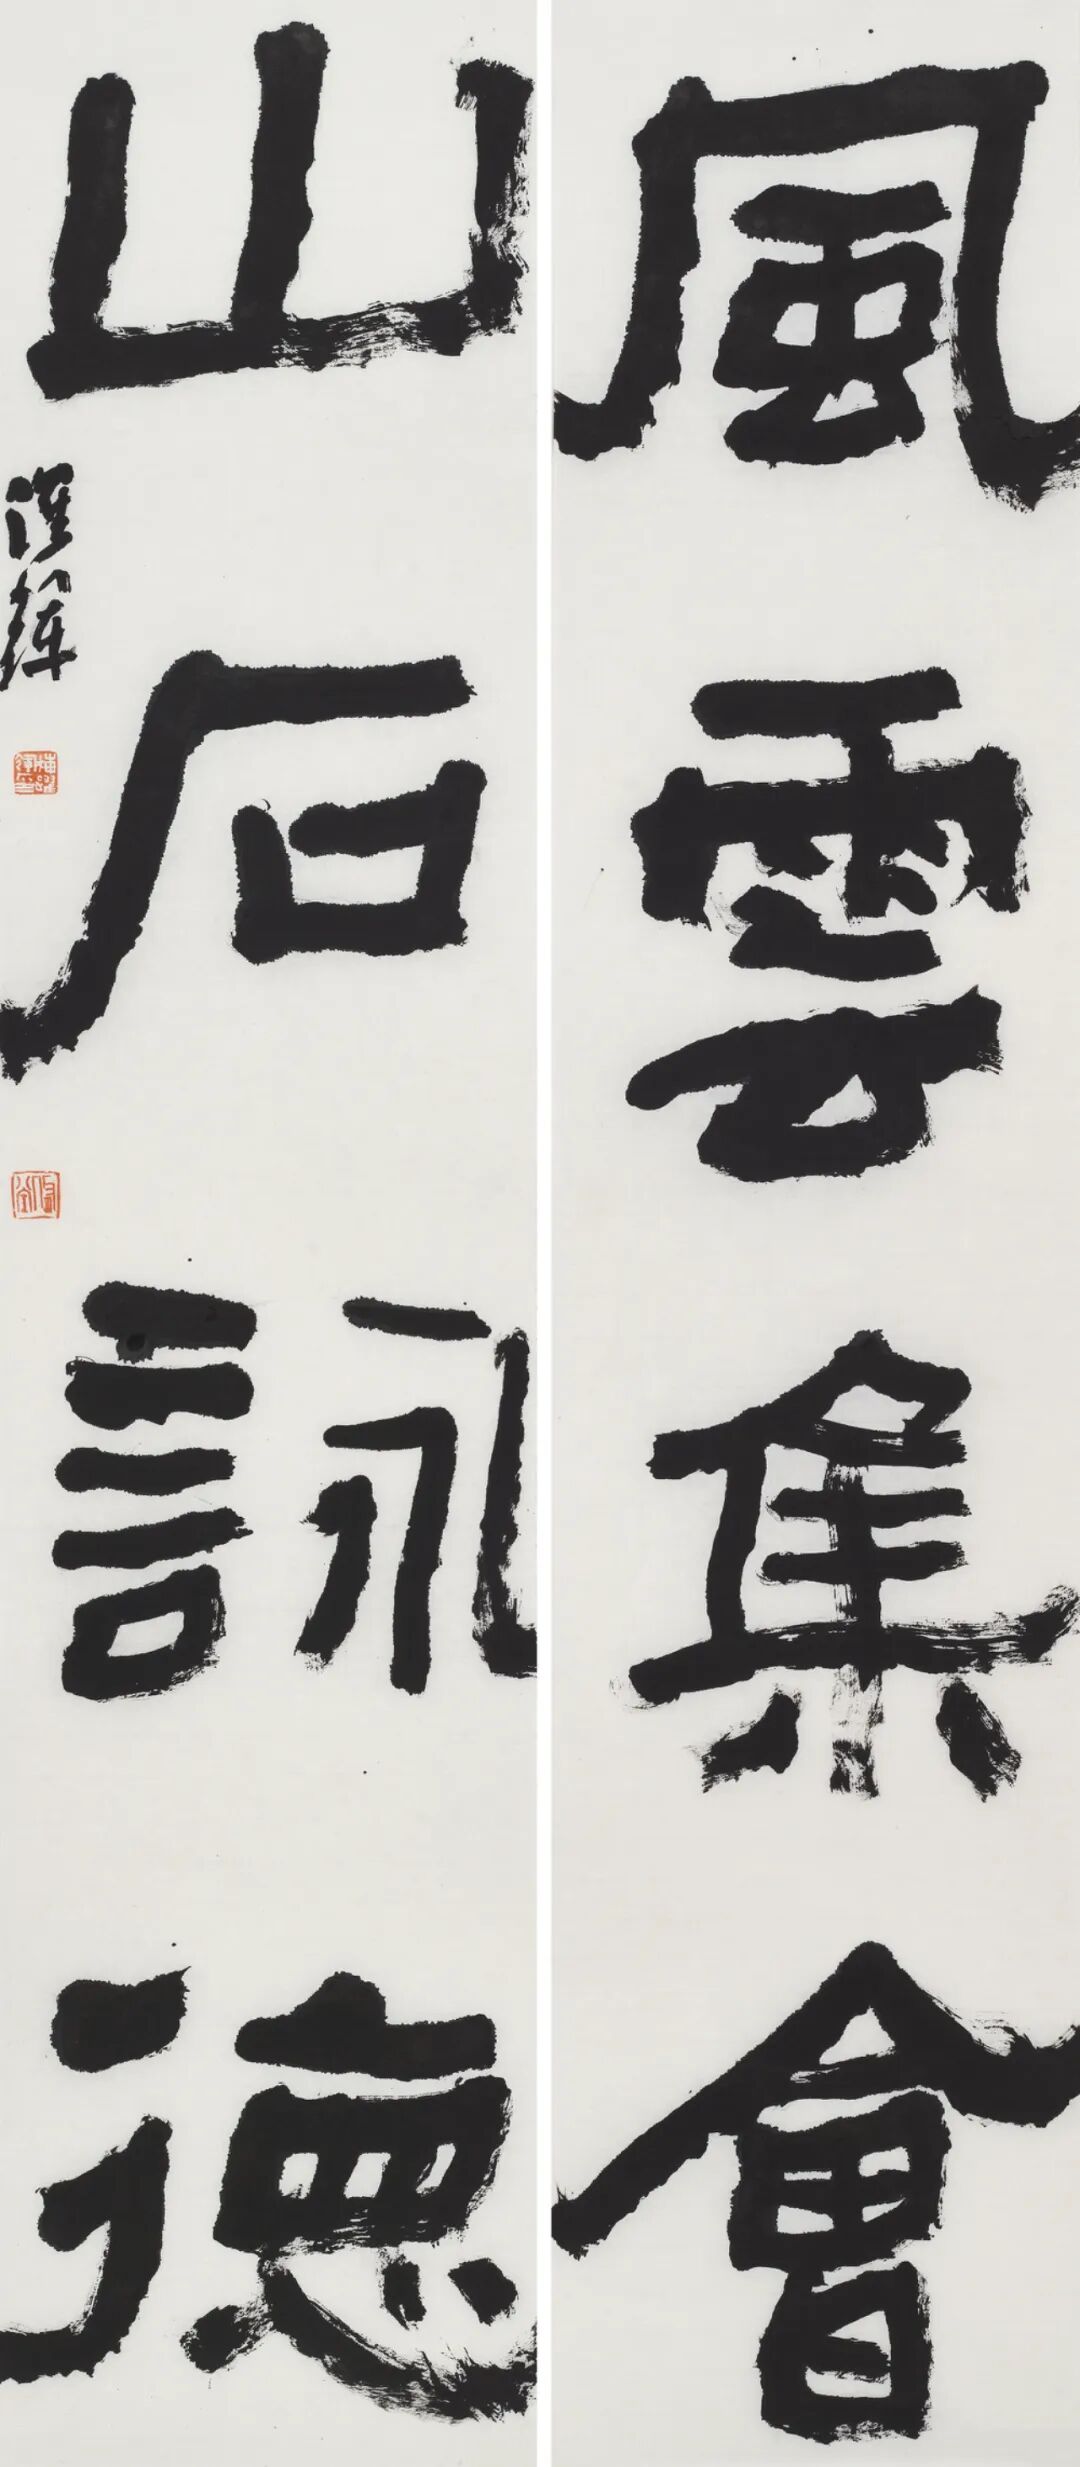 風雲集會
山石詠德